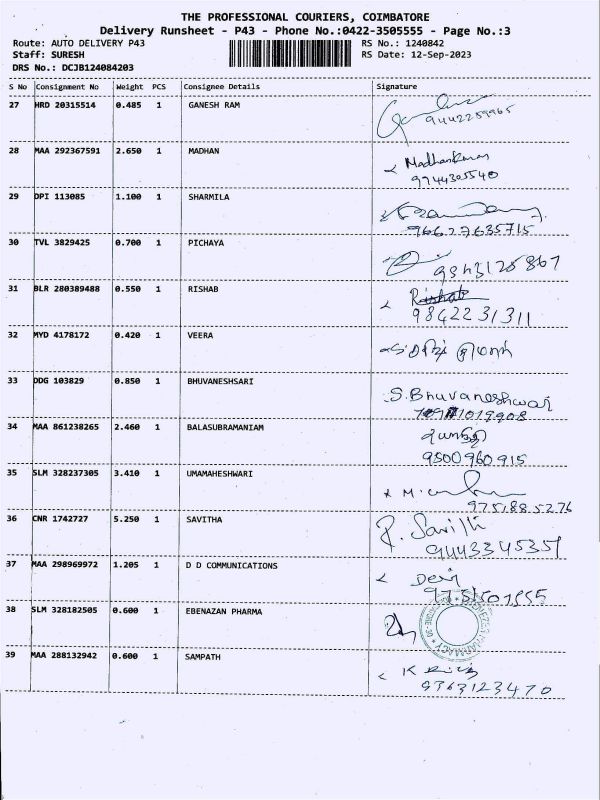 THE PROFESSIONAL COURIERS, COIMBATORE
Delivery Runsheet - P43 - Phone No.:0422-3505555 - Page No.:3
Route: AUTO DELIVERY P43 RS No.: 1240842
Staff: SURESH RS Date: 12-Sep-2023
DRS No.: DCJB124084203
S No Consignment No Weight PCS Consignee Details Signature
27 HRD 20315514 0.485 1 GANESH RAM
9442259965
28 MAA 292367591 2.650 1 MADHAN Madhankumar
9744305540
29 DPI 113085 1.100 1 SHARMILA
30 TVL 3829425 0.700 1 PICHAYA
9343125867
31 BLR 280389488 0.550 1 RISHAB Rishab
9842231311
32 MYD 4178172 0.420 1 VEERA
33 DDG 103829 0.850 1 BHUVANESHSARI S.Bhuvaneshwari
34 MAA 861238265 2.460 1 BALASUBRAMANIAM
9500960915
35 SLM 328237305 3.410 1 UMAMAHESHWARI
9751885276
36 CNR 1742727 5.250 1 SAVITHA R. Savitha
9443345351
37 MAA 298969972 1.205 1 D D COMMUNICATIONS
38 SLM 328182505 0.600 1 EBENAZAN PHARMA
39 MAA 288132942 0.600 1 SAMPATH
9363123470